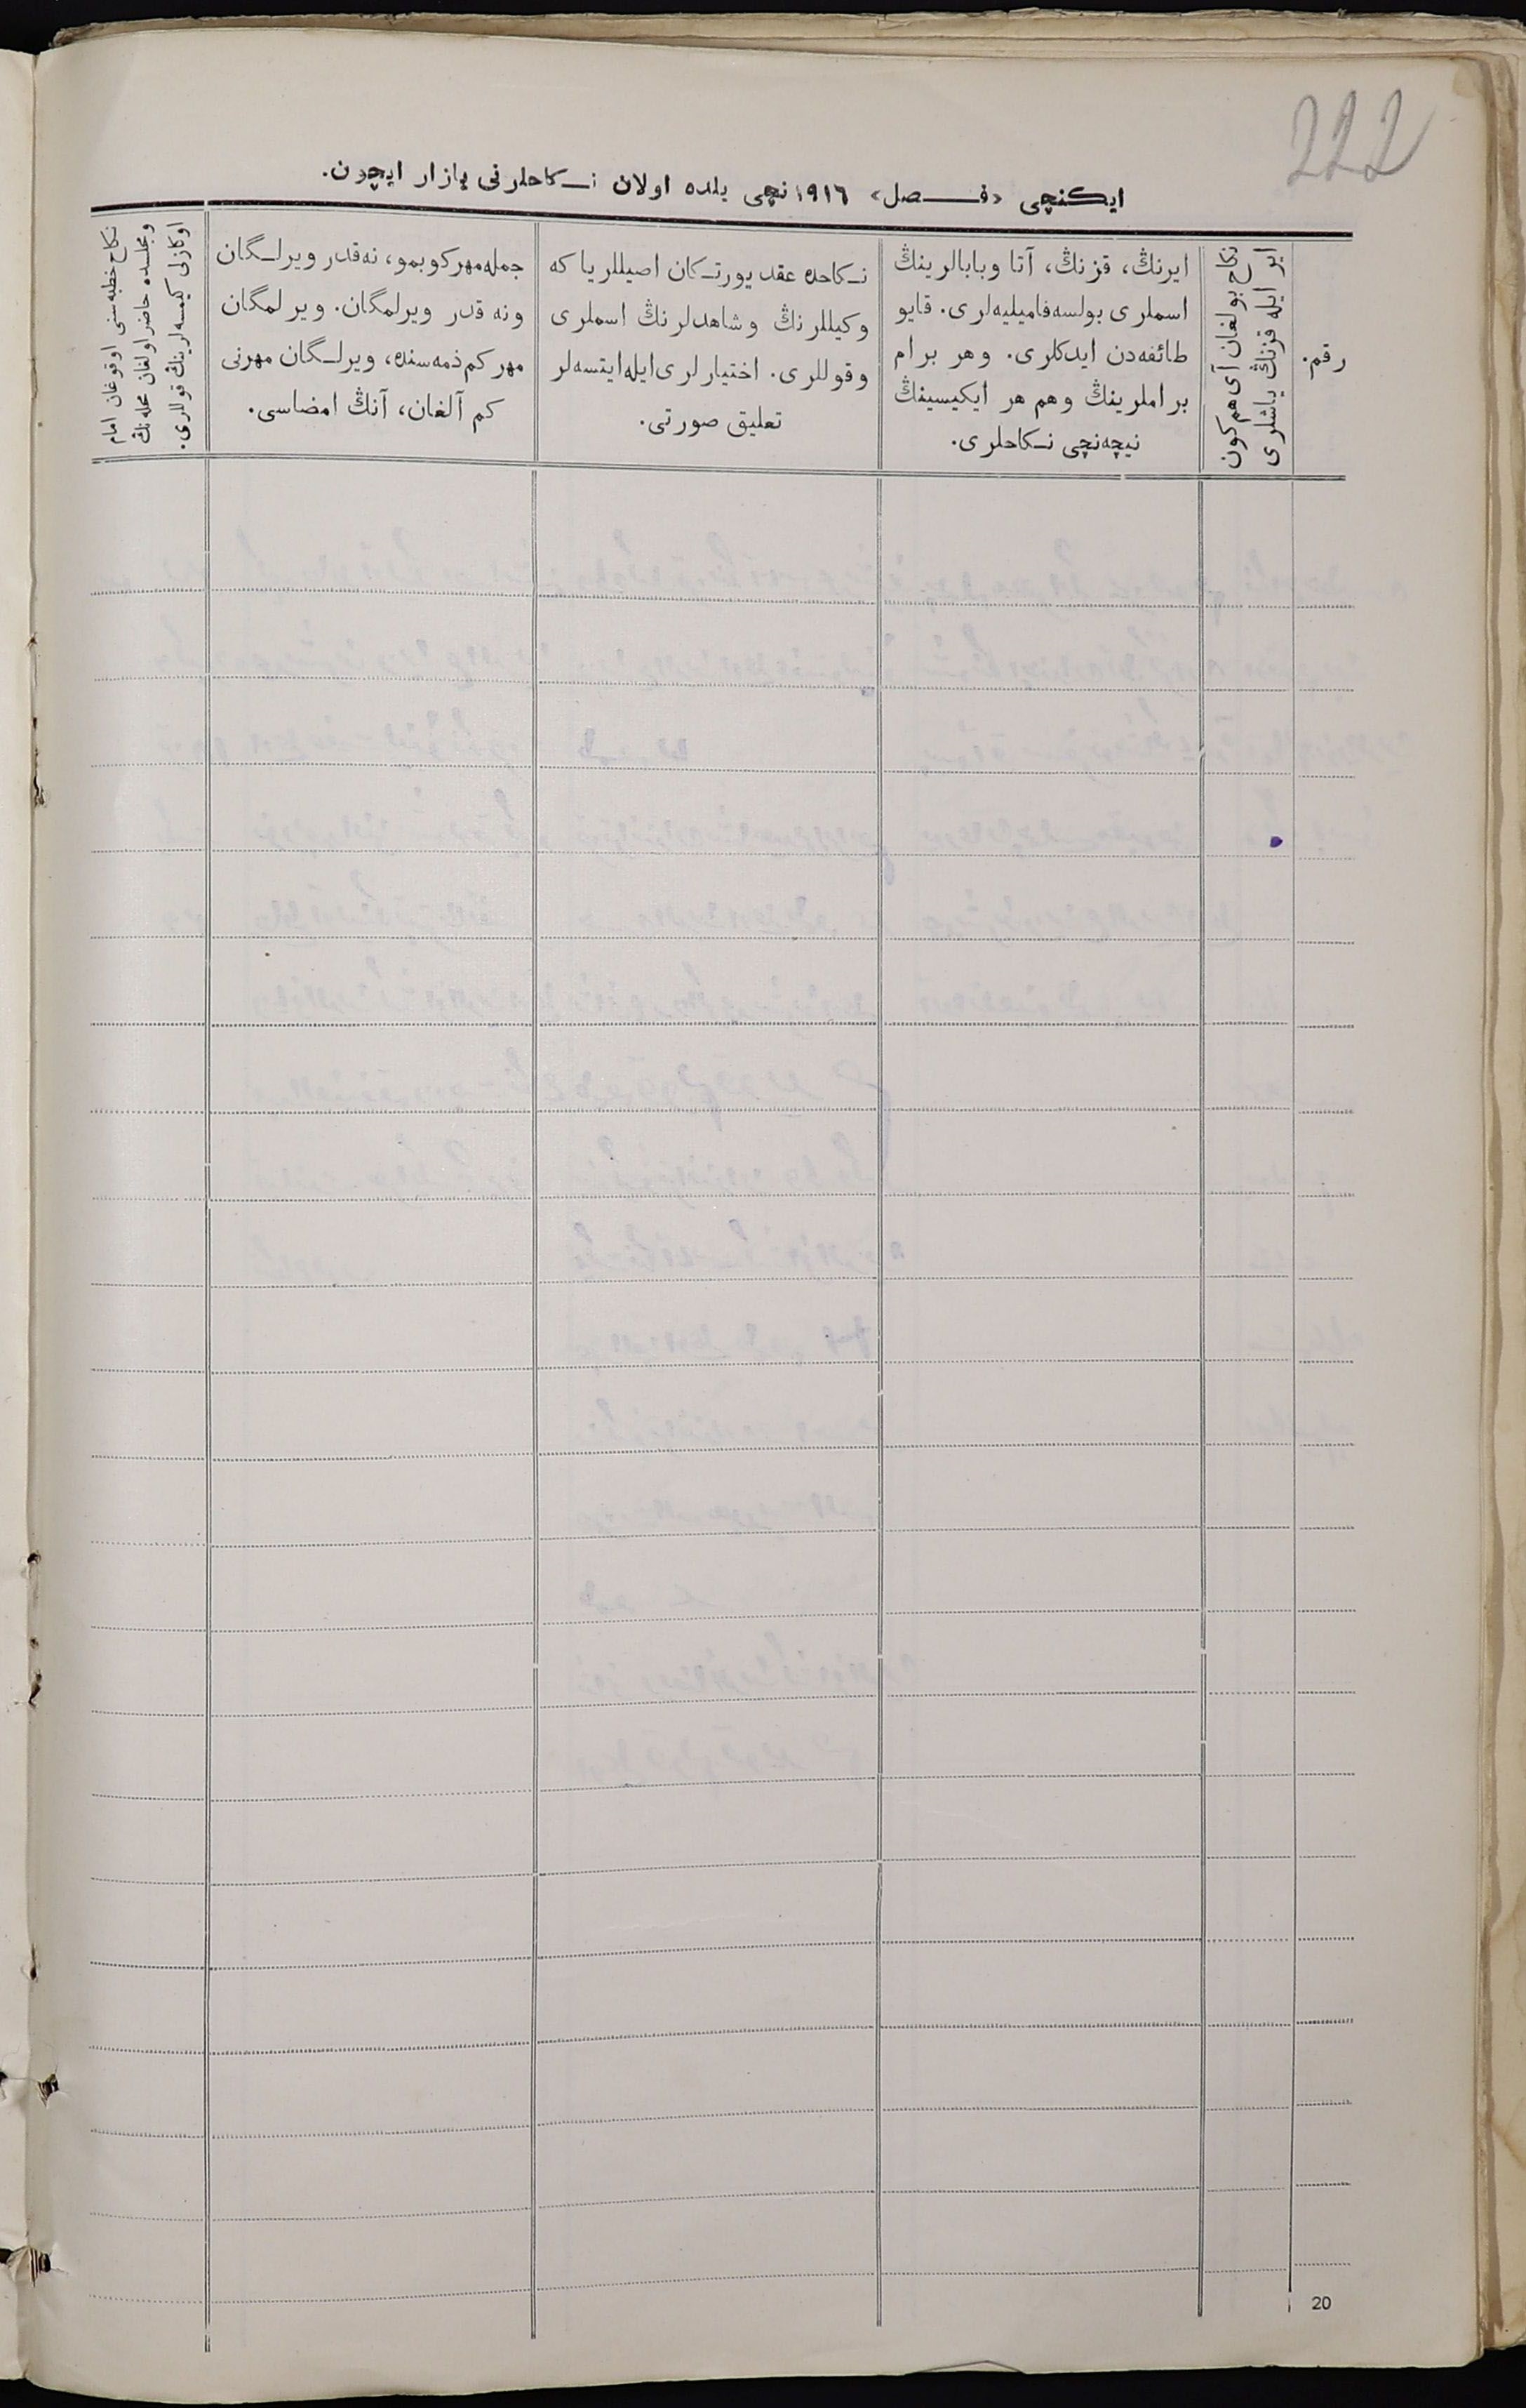 222
ایکنچی «فصل» ١٩١٦ نچی یلده اولان نکاحلرنی یازار ایچون.
رقم.
نکاح بولغان آی هم کون
ایر ایله قزنڭ یاشلری
ایرنڭ، قزنڭ، آتا وبابالرینڭ
اسملری بولسه فامیلیه‌لری. قایو
طائفه‌دن ایدکلری. وهر برام
براملرینڭ وهم هر ایکیسینڭ
نیچه‌نچی نکاحلری.
نکاحده عقد یورتکان اصیللر یا که
وکیللرنڭ وشاهدلرنڭ اسملری
وقوللری. اختیارلری ایله ایتسه‌لر
تعلیق صورتی.
جمله مهر کوبمو، نه‌قدر ویرلگان
ونه قدر ویرلمگان. ویرلمگان
مهر کم ذمه‌سنده، ویرلگان مهرنی
کم آلغان، آنڭ امضاسی.
نکاح خطبه‌سنی اوقوغان امام
ومجلسده حاضر اولغان محله‌نڭ
اوکازلی کیمسه‌لرینڭ قوللری.
20